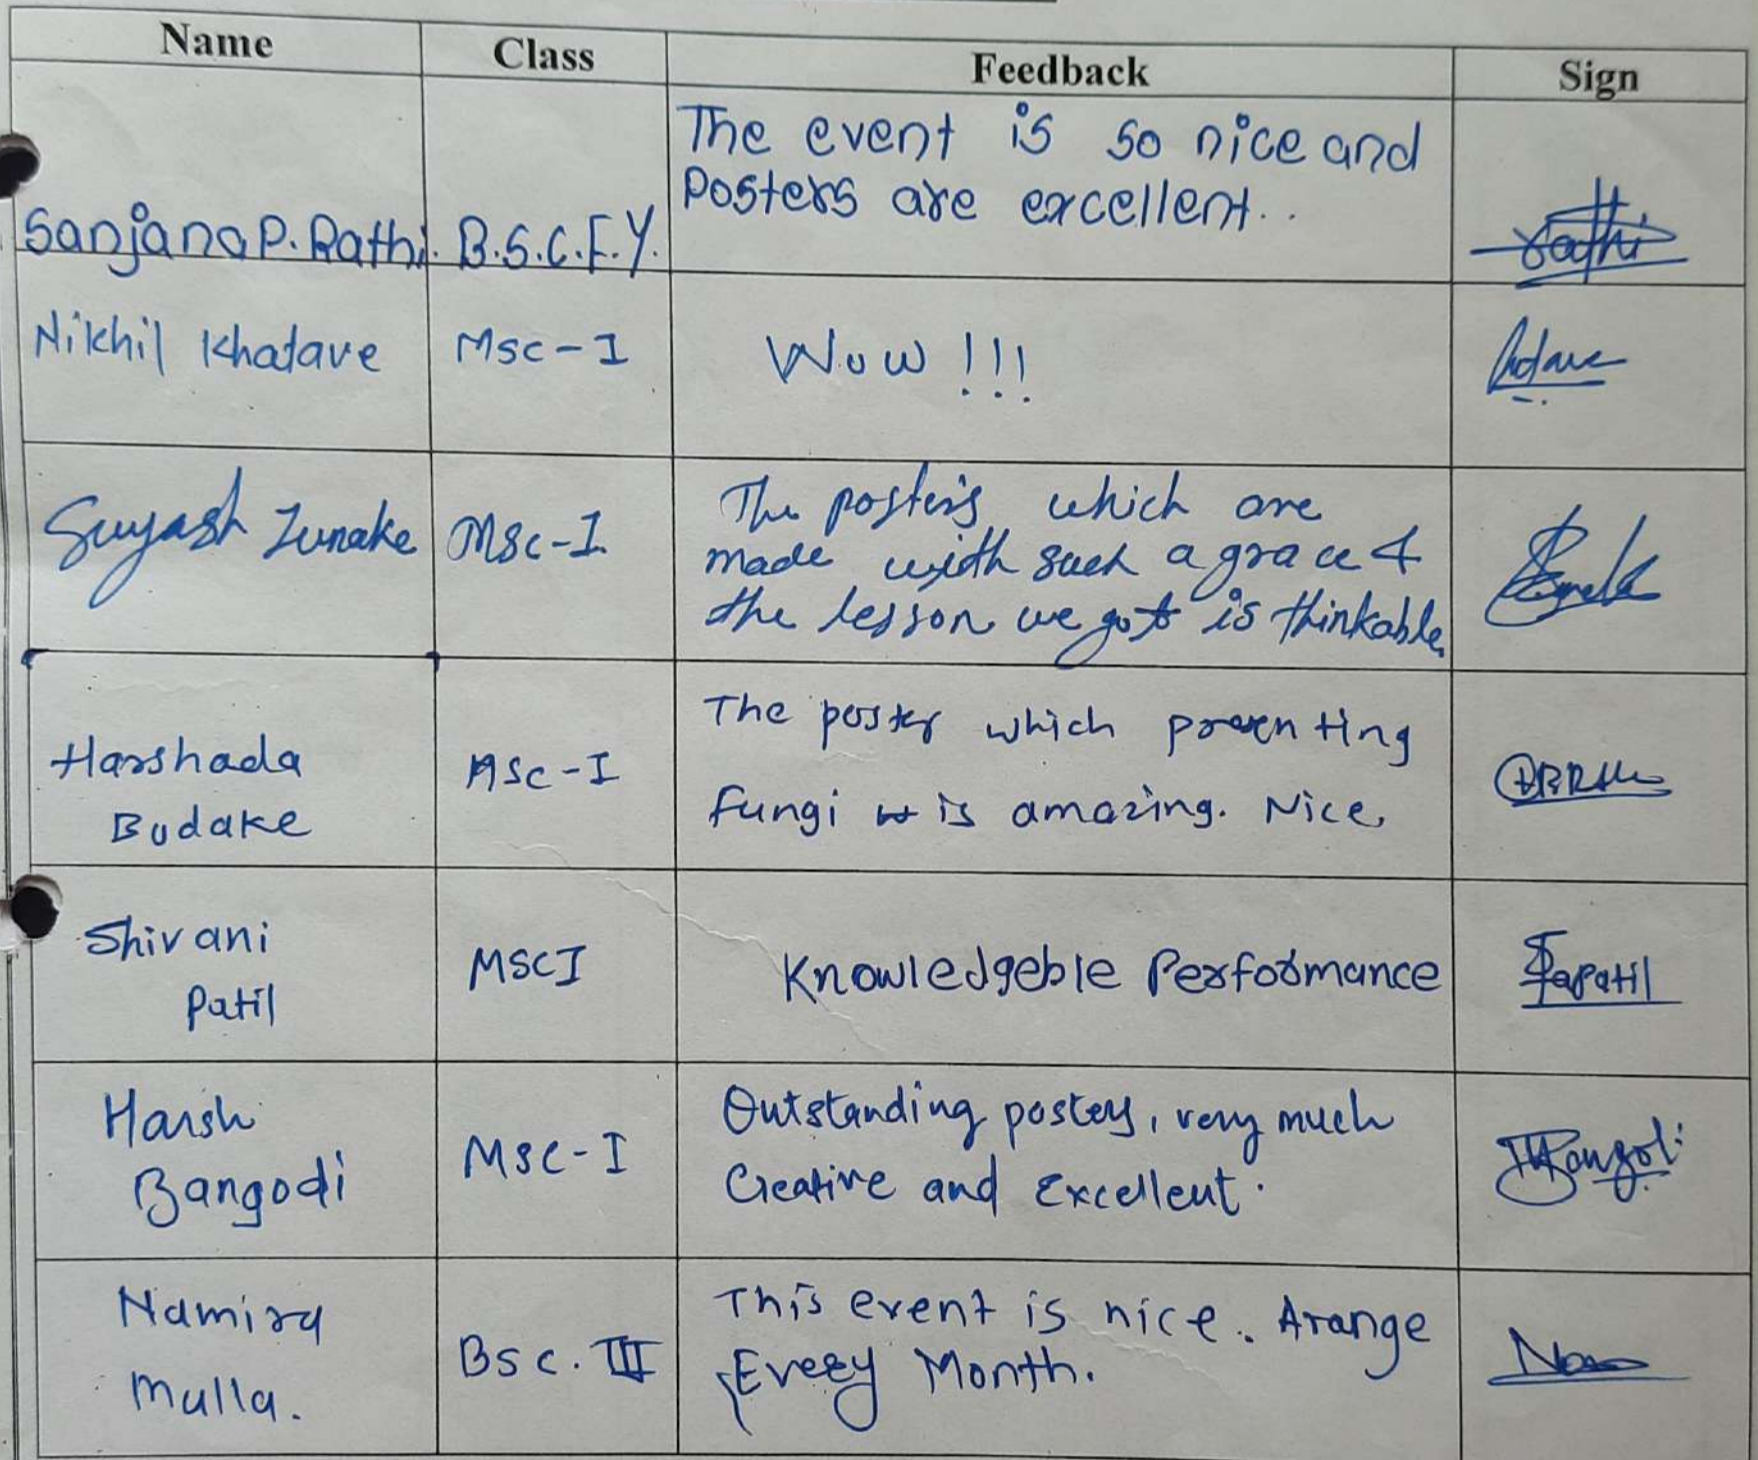 Name Class Feedback Sign
The event is so nice and
Posters are excellent..
Sanjana P. Rathi. B.S.C.F.Y. Rathi
Nikhil Khatave Msc-I Wow !!!
Suyash Zunake Msc-I
The posters which are
made with such a grace &
the lesson we got is thinkable.
Harshada
Budake
Msc-I
The poster which
Fungi is amazing. Nice.
Shivani
Patil
MSC I
Knowledgeble Performance
Sapatil
Harsh
Bangodi
Msc-I
Outstanding posters, very much
Creative and Excellent.
Namira
Mulla.
Bsc. III
This event is nice. Arange
Every Month.